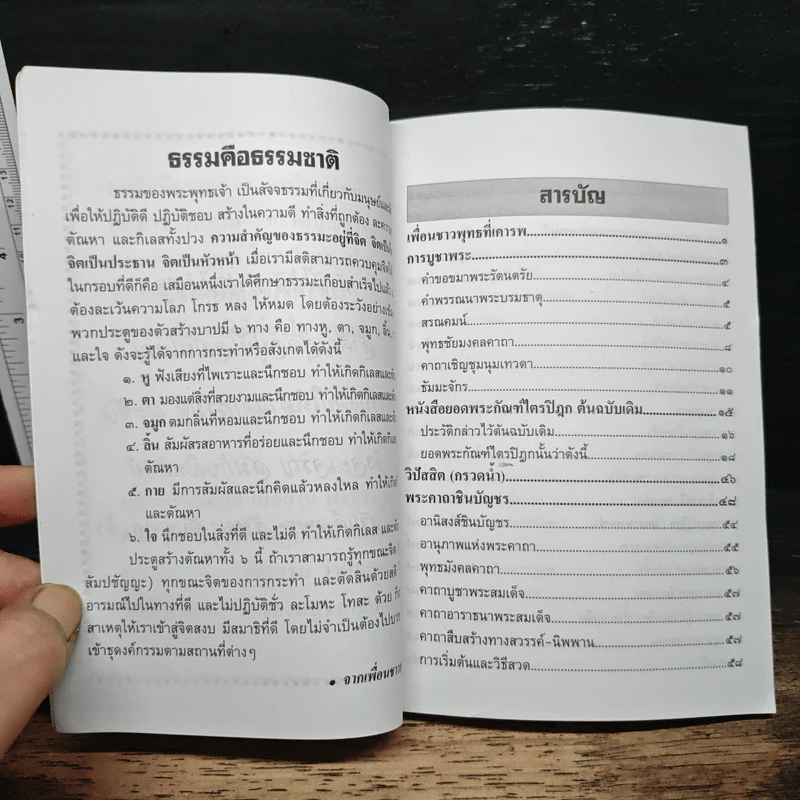 ธรรมคือธรรมชาติ
ธรรมของพระพุทธเจ้า เป็นสัจจธรรมที่เกี่ยวกับมนุษย์และ
เพื่อให้ปฏิบัติดี ปฏิบัติชอบ สร้างในความดี ทำสิ่งที่ถูกต้อง ละความ
ตัณหา และกิเลสทั้งปวง ความสำคัญของธรรมะอยู่ที่จิต จิตเป็น
จิตเป็นประธาน จิตเป็นหัวหน้า เมื่อเรามีสติสามารถควบคุมจิต
ในกรอบที่ดีก็คือ เสมือนหนึ่งเราได้ศึกษาธรรมะเกือบสำเร็จไปแล้ว
ต้องละเว้นความโลภ โกรธ หลง ให้หมด โดยต้องระวังอย่าง
พวกประตูของตัวสร้างบาปมี ๖ ทาง คือ ทางหู, ตา, จมูก, ลิ้น,
และใจ ดังจะรู้ได้จากการกระทำหรือสังเกตได้ดังนี้
๑. หู ฟังเสียงที่ไพเราะและนึกชอบ ทำให้เกิดกิเลสและ
๒. ตา มองแต่สิ่งที่สวยงามและนึกชอบ ทำให้เกิดกิเลสและ
๓. จมูก ดมกลิ่นที่หอมและนึกชอบ ทำให้เกิดกิเลสและ
๔. ลิ้น สัมผัสรสอาหารที่อร่อยและนึกชอบ ทำให้เกิด
ตัณหา
๕. กาย มีการสัมผัสและนึกคิดแล้วหลงใหล ทำให้
และตัณหา
๖. ใจ นึกชอบในสิ่งที่ดี และไม่ดี ทำให้เกิดกิเลส และ
ประตูสร้างตัณหาทั้ง ๖ นี้ ถ้าเราสามารถรู้ทุกขณะจิต
สัมปชัญญะ) ทุกขณะจิตของการกระทำ และตัดสินด้วยสติ
อารมณ์ไปในทางที่ดี และไม่ปฏิบัติชั่ว ละโมหะ โทสะ ด้วย
สาเหตุให้เราเข้าสู่จิตสงบ มีสมาธิที่ดี โดยไม่จำเป็นต้องไป
เข้าธุดงค์กรรมตามสถานที่ต่างๆ
• จากเพื่อนชาว
สารบัญ
เพื่อนชาวพุทธที่เคารพ...๑
การบูชาพระ...๓
คำขอขมาพระรัตนตรัย...๔
คำพรรณนาพระบรมธาตุ...๕
สรณคมน์...๕
พุทธชัยมงคลคาถา...๘
คาถาเชิญชุมนุมเทวดา...๑๐
ธัมมะจักร...๑๑
หนังสือยอดพระกัณฑ์ไตรปิฎก ต้นฉบับเดิม...๑๕
ประวัติกล่าวไว้ต้นฉบับเดิม...๑๖
ยอดพระกัณฑ์ไตรปิฎกนั้นว่าดังนี้...๑๘
วิปัสสิต (กรวดน้ำ)...๔๖
พระคาถาชินบัญชร...๔๘
อานิสงส์ชินบัญชร...๕๔
อานุภาพแห่งพระคาถา...๕๕
พุทธมังคลคาถา...๕๖
คาถาบูชาพระสมเด็จ...๕๗
คาถาอาราธนาพระสมเด็จ...๕๗
คาถาสืบสร้างทางสวรรค์-นิพพาน...๕๗
การเริ่มต้นและวิธีสวด...๕๘